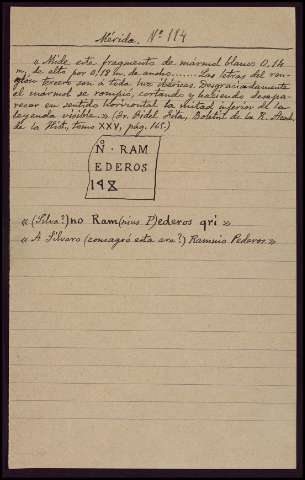 Mérida. Nº 114
« Mide este fragmento de mármol blanco 0,14
m. de alto por 0,18 m. de ancho....... Las letras del ren-
glón tercero son a toda luz ibéricas. Desgraciadamente
el mármol se rompió, cortando y haciendo desapa-
recer en sentido horizontal la mitad inferior de la
leyenda visible.» (Sr. Fidel Fita, Boletín de la R. Acad.
de la Hist., tomo XXV, pág. 165.)
N · RAM
EDEROS
« (Silva?)no Ram(nius P)ederos qri »
« A Silvano (consagró esta ara?) Ramnio Pederos.»